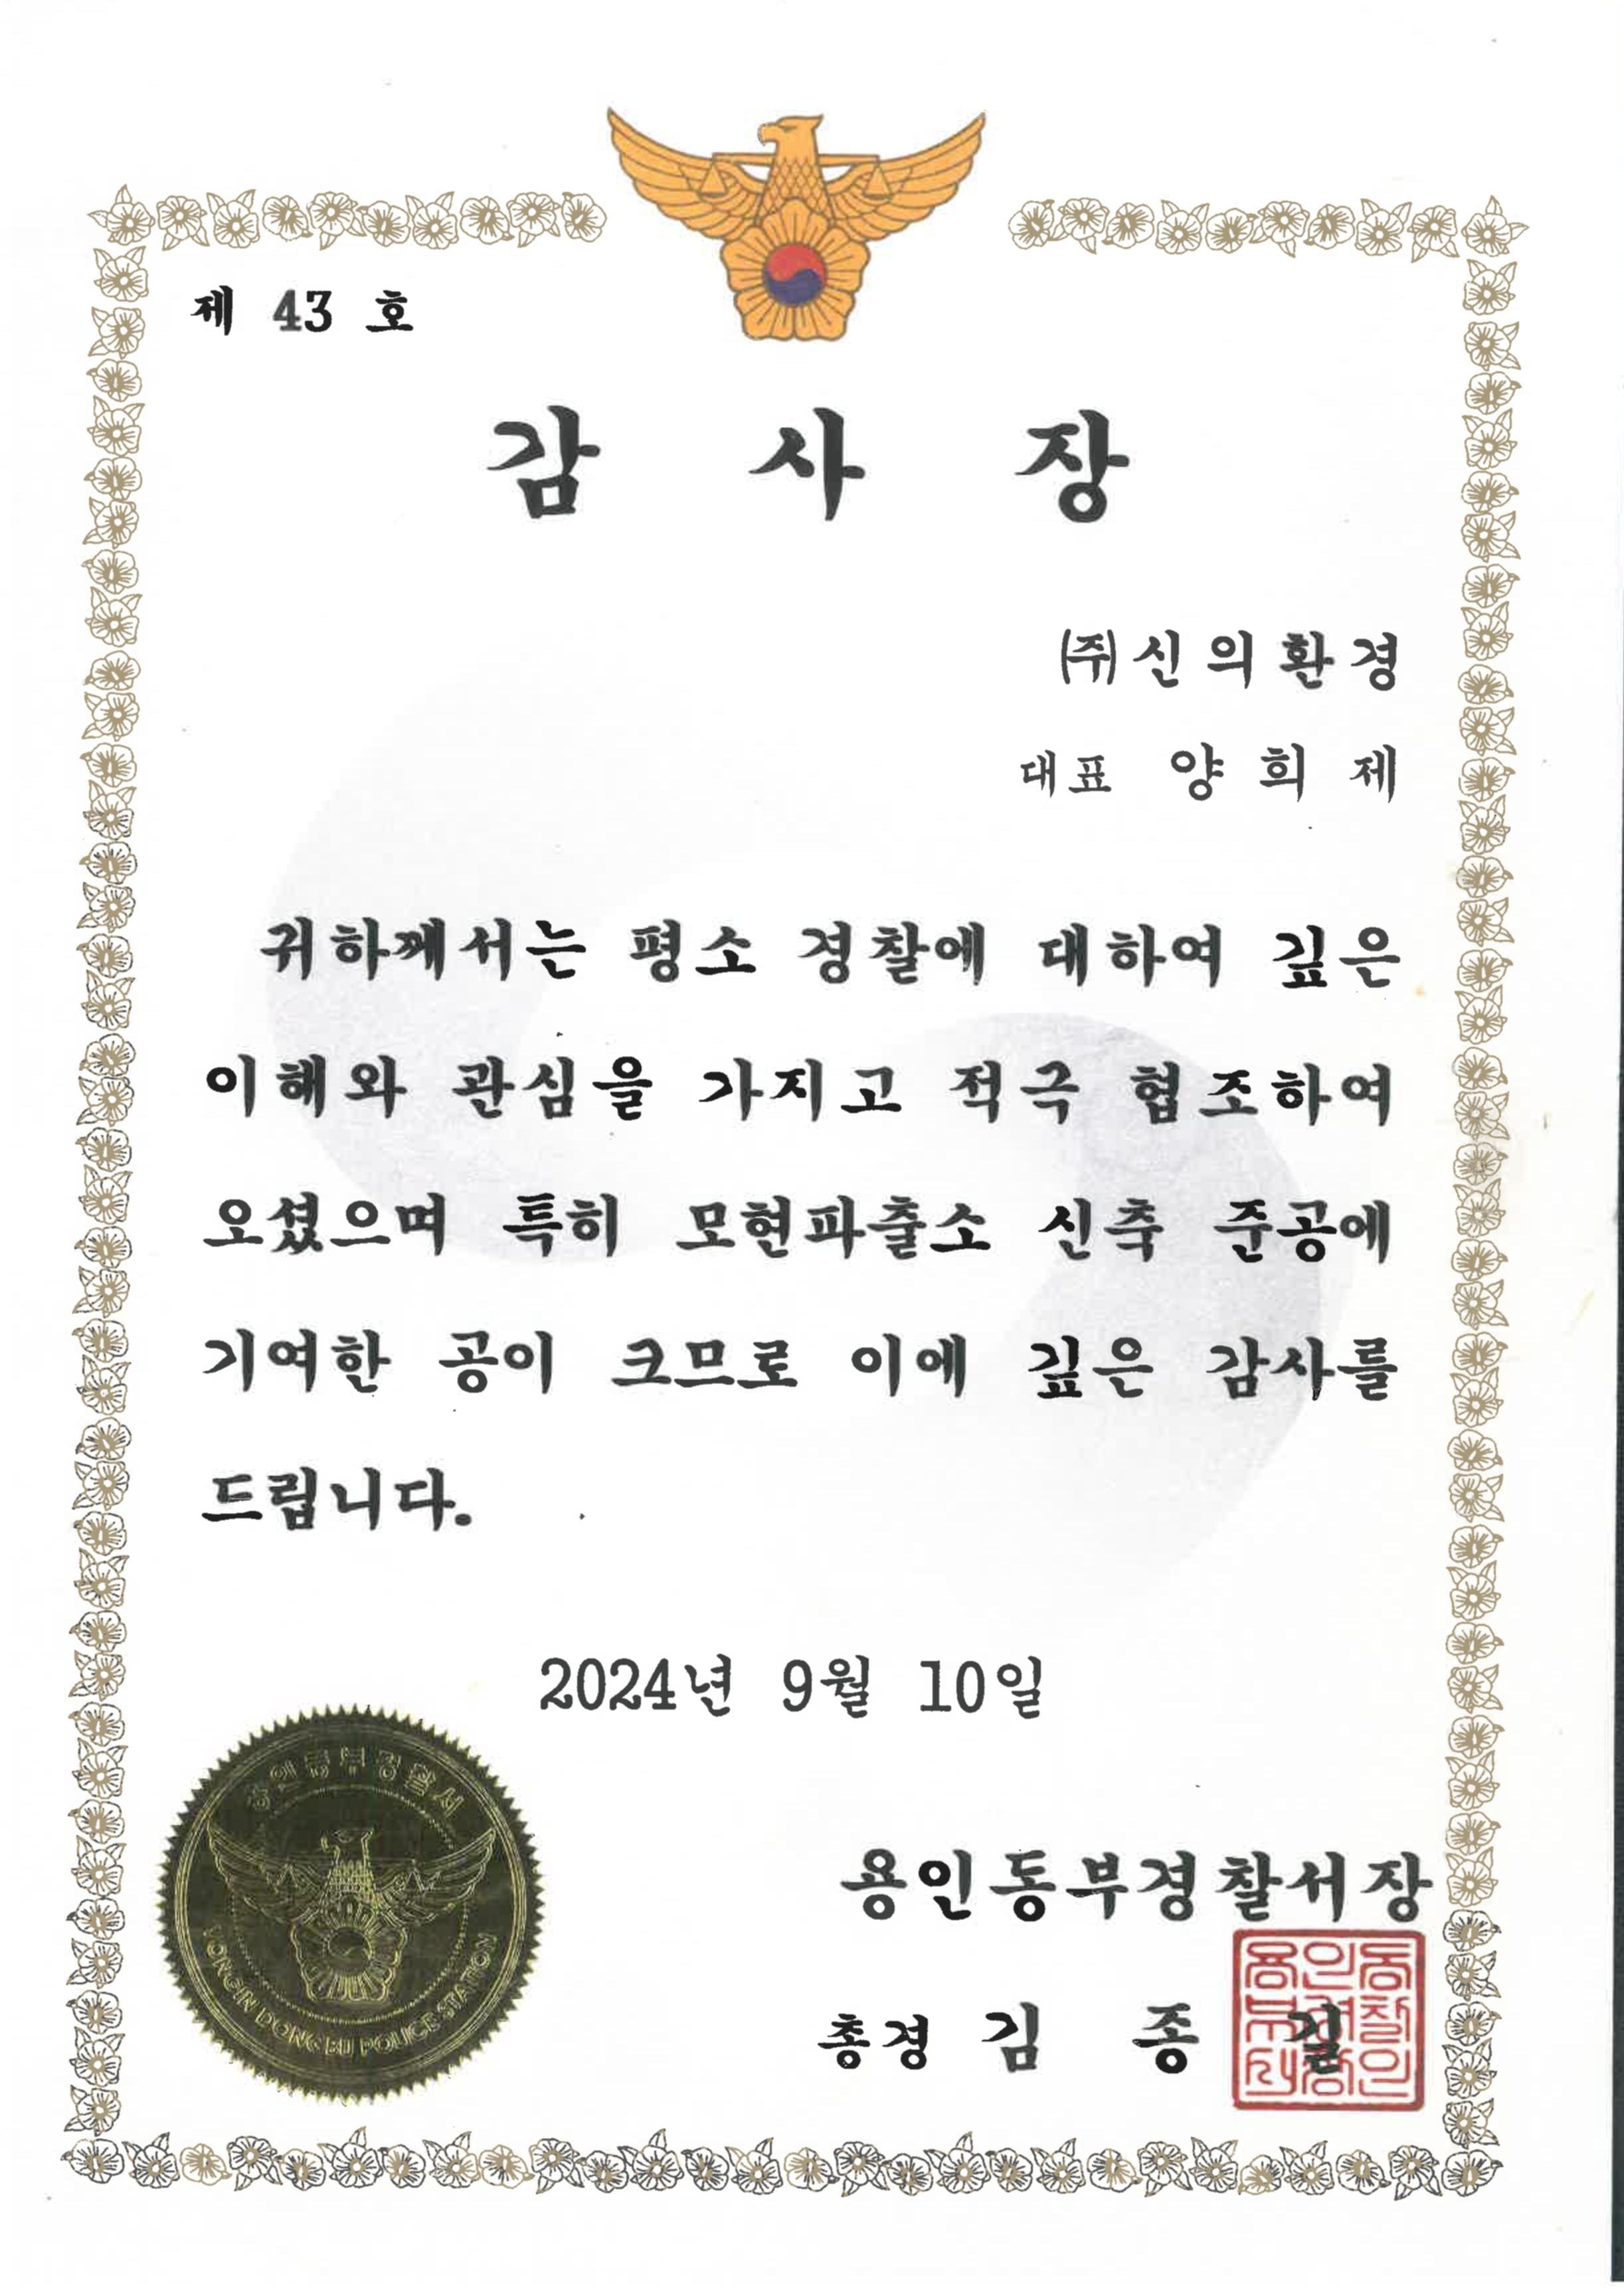 제 43 호
감 사 장
㈜신의환경
대표 양 희 제
귀하께서는 평소 경찰에 대하여 깊은
이해와 관심을 가지고 적극 협조하여
오셨으며 특히 모현파출소 신축 준공에
기여한 공이 크므로 이에 깊은 감사를
드립니다.
2024년 9월 10일
용인동부경찰서
YONGIN DONGBU POLICE STATION
용인동부경찰서장
총경 김 종 길
용인동
부경찰
서장인